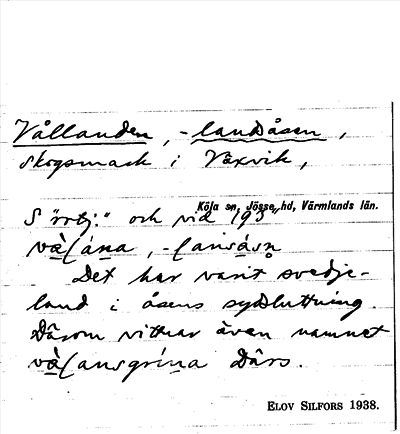 Vållanden, -landsåsen,
skogsmark i Växvik,
Köla sn, Jösse hd, Värmlands län.
S "örtj:" och vid 193"
Det har varit svedje-
land i åsens sydsluttning.
Därom vittnar även namnet
därs.
ELOV SILFORS 1938.